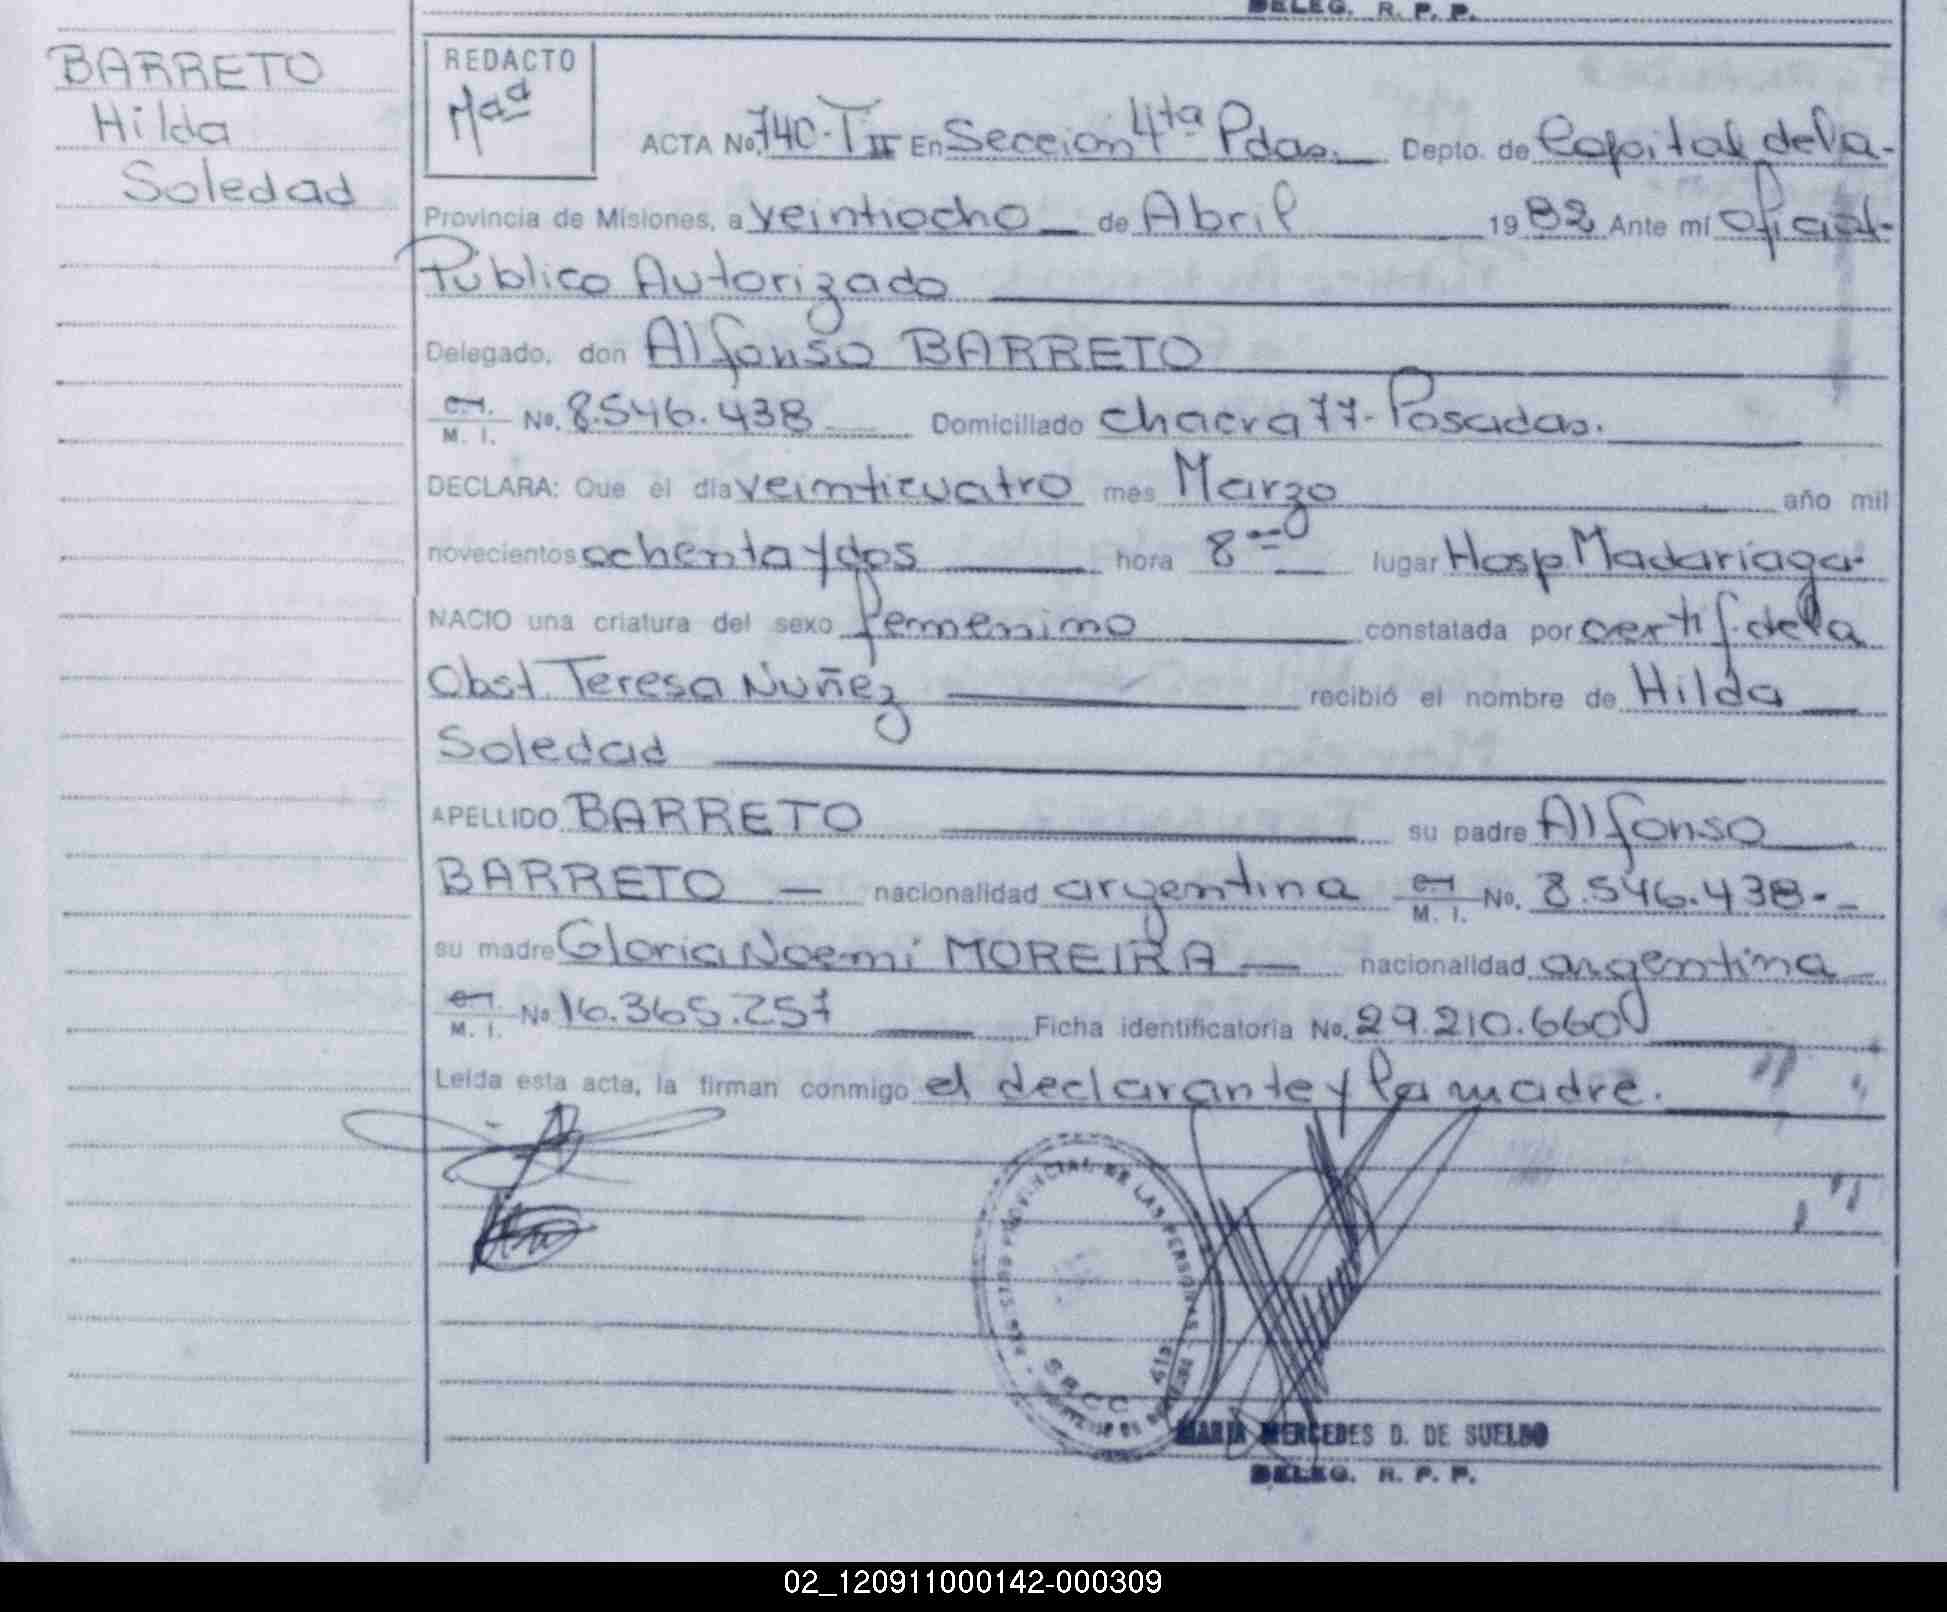 DELEG. R. P. P.
BARRETO
Hilda
Soledad
REDACTO
Mªª
ACTA No. 740-T II En Seccion 4ta Pdas. Depto. de Capital de la
Provincia de Misiones, a veintiocho de Abril 1982 Ante mí Oficial
Público Autorizado
Delegado, don Alfonso BARRETO
M. I. No. 8.546.438 Domiciliado chacra 77 - Posadas.
DECLARA: Que el día veinticuatro mes Marzo año mil
novecientos ochenta y dos hora 8 lugar Hosp Madariaga
NACIO una criatura del sexo femenino constatada por certif. de la
Obst. Teresa Nuñez recibió el nombre de Hilda
Soledad
APELLIDO BARRETO su padre Alfonso
BARRETO nacionalidad argentina M. I. No. 8.546.438.-
su madre Gloria Noemi MOREIRA nacionalidad argentina
M. I. No 16.365.257 Ficha identificatoria No. 29.210.660
Leída esta acta, la firman conmigo el declarante y la madre.
REGISTRO PROVINCIAL DE LAS PERSONAS
MARIA MERCEDES D. DE SUELDO
DELEG. R. P. P.
02_120911000142-000309